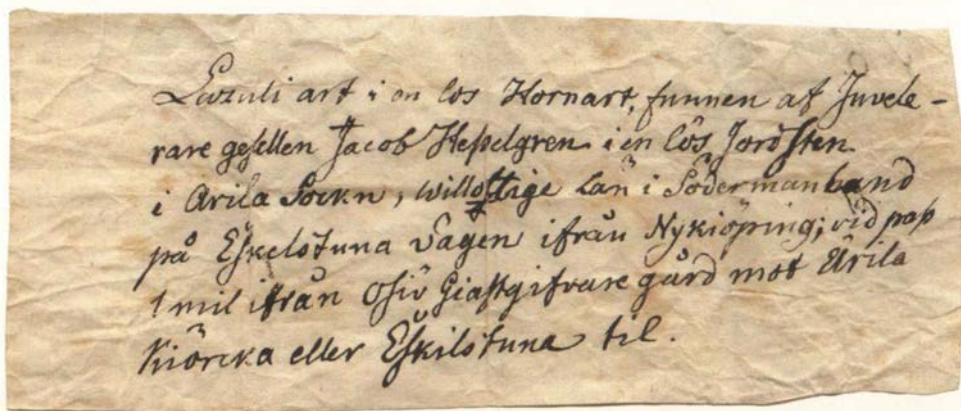 Lazuli art i en los Hornart, funnen af Juvele-
rare gesellen Jacob Hesselgren i en lös Jordsten
i Ärila Sockn, willottige Län i Södermanland
på Eskelstuna Vägen ifrån Nykiöping; vid pass
1 mil ifrån Giästgifvare gård mot Ärila
Kiörcka eller Eskilstuna til.